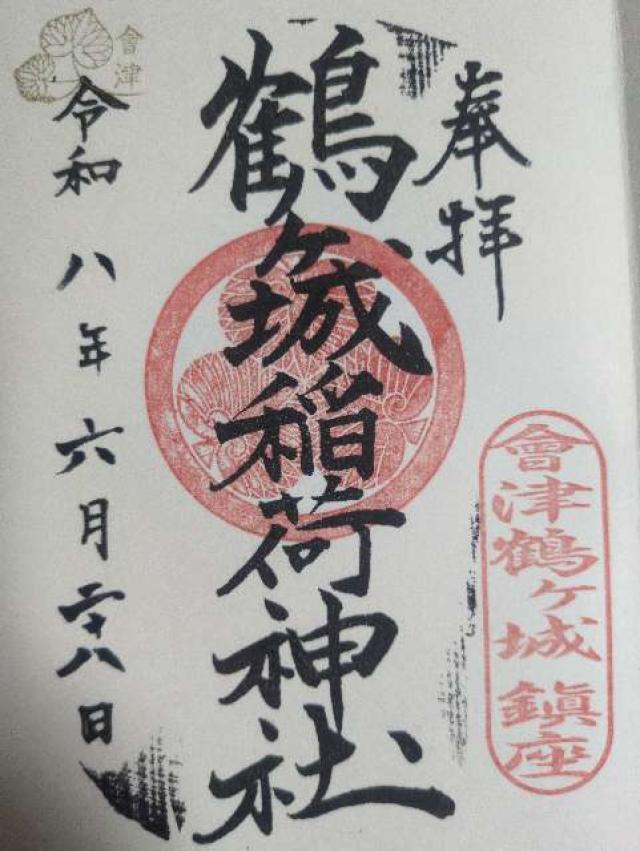 奉拝
會津鶴ヶ城鎮座
鶴ヶ城稲荷神社
令和八年六月二十八日
會津